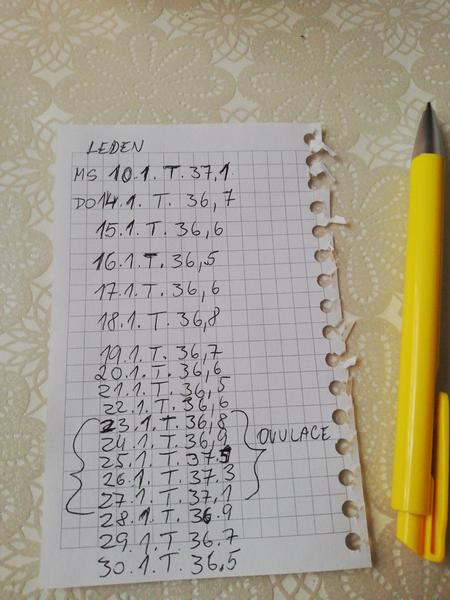 LEDEN
MS 10.1. T. 37,1
DO 14.1. T. 36,7
15.1. T. 36,6
16.1. T. 36,5
17.1. T. 36,6
18.1. T. 36,8
19.1. T. 36,7
20.1. T. 36,6
21.1. T. 36,5
22.1. T. 36,6
23.1. T. 36,8
24.1. T. 36,9 OVULACE
25.1. T. 37.5
26.1. T. 37.3
27.1. T. 37,1
28.1. T. 36.9
29.1. T. 36.7
30.1. T. 36,5